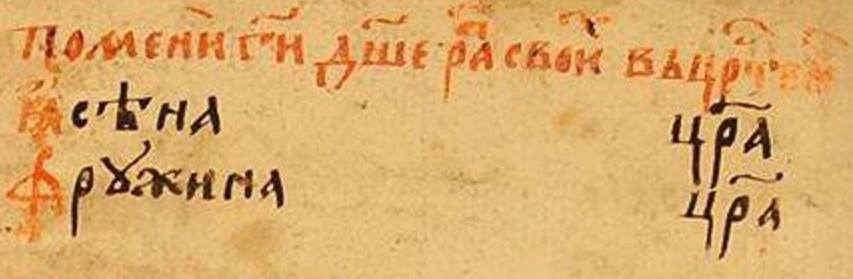 Помени г҃и дш҃е ра҃ свои въ цр҃тви
Ꙗсѣна цр҃а
Фрꙋжина цр҃а